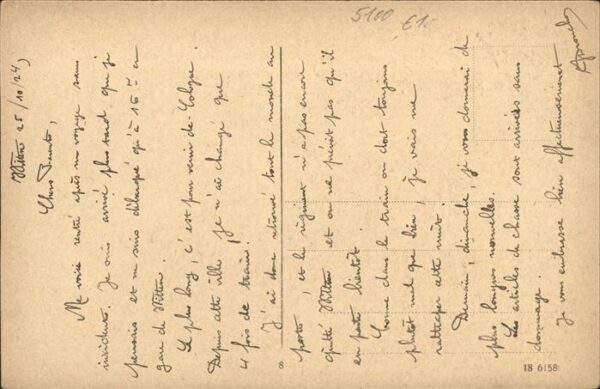 Witten 25/10/24,
Chers Parents,
Me voici rentré après un voyage sans
incidents. Je suis arrivé plus tard que je
pensais et ne suis débarqué qu'à 15 h en
gare de Witten.
Le plus long, c'est pour venir de Cologne.
Depuis cette ville, je n'ai changé que
4 fois de train.
J'ai donc retrouvé tout le monde au
poste, et le régiment n'a pas encore
quitté Witten et on ne prévoit pas qu'il
en parte bientôt.
Comme dans le train on dort toujours
plutôt mal que bien, je vais me
rattraper cette nuit.
Demain, dimanche, je vous donnerai de
plus longues nouvelles.
Les articles de chasse sont arrivés sans
dommage.
Je vous embrasse bien affectueusement
5100
£1-
8
18 6158